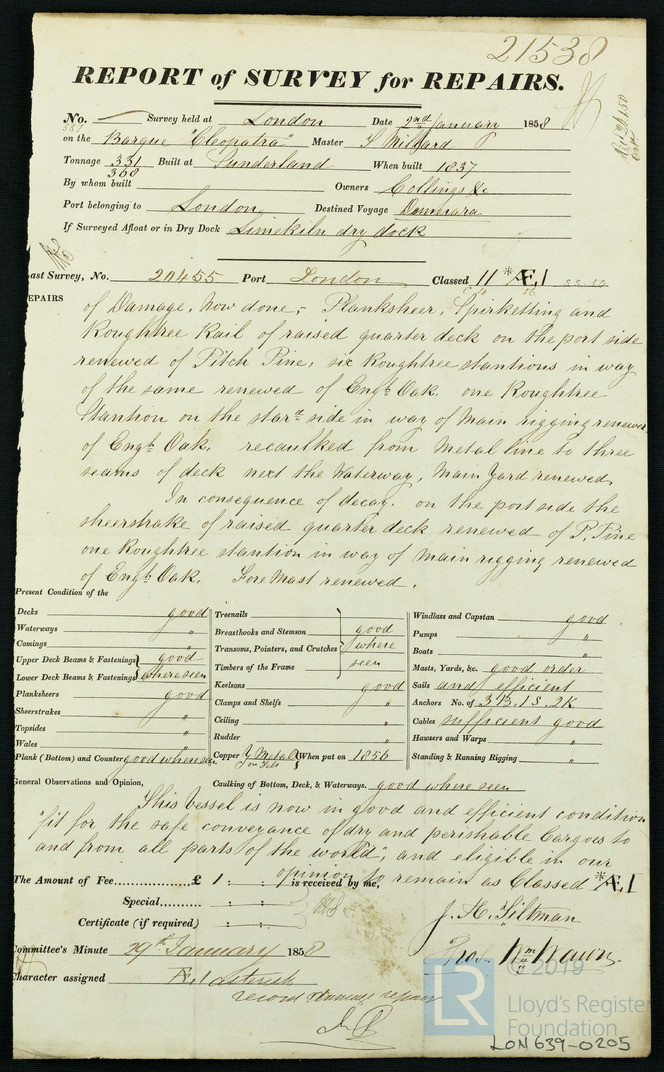 21538
REPORT of SURVEY for REPAIRS.
No. — Survey held at London Date 2nd January 1858
on the Barque "Cleopatra" Master S Millard
Tonnage 331 Built at Sunderland When built 1837
368
By whom built Owners Collings &c
Port belonging to London Destined Voyage Demerara
If Surveyed Afloat or in Dry Dock Limekiln dry dock
Last Survey, No. 20455 Port London Classed 11 *Æ1
REPAIRS of Damage, Now done,- Planksheer, Spirketting and
Roughtree Rail of raised quarter deck on the port side
renewed of Pitch Pine, six Roughtree stantions in way
of the same renewed of Engh. Oak. one Roughtree
Stantion on the stard. side in way of Main rigging renewed
of Engh. Oak. recaulked from Metal line to three
seams of deck next the Waterway, Main Yard renewed,
In consequence of decay. on the port side the
sheerstrake of raised quarter deck renewed of P. Pine
one Roughtree stantion in way of main rigging renewed
of Engh. Oak. Fore Mast renewed.
Present Condition of the
Decks good
Waterways "
Comings "
Upper Deck Beams & Fastenings good
Lower Deck Beams & Fastenings where seen
Planksheers good
Sheerstrakes "
Topsides "
Wales "
Plank (Bottom) and Counter good where seen
Treenails
Breasthooks and Stemson good
Transoms, Pointers, and Crutches where
Timbers of the Frame seen
Keelsons good
Clamps and Shelfs "
Ceiling "
Rudder "
Copper Y Metal on Felt When put on 1856
Windlass and Capstan good
Pumps "
Boats "
Masts, Yards, &c. good order
Sails and efficient
Anchors No. of 3 B, 1 S, 2 K
Cables sufficient good
Hawsers and Warps "
Standing & Running Rigging "
General Observations and Opinion, Caulking of Bottom, Deck, & Waterways. good where seen
This Vessel is now in good and efficient condition
"fit for the safe conveyance of dry and perishable Cargoes to
and from all parts of the world", and eligible in our
opinion to remain as Classed *Æ1
The Amount of Fee £ 1 : : is received by me,
Special : :
Certificate (if required) : :
J. H. Tiltman
Committee's Minute 29th January 1858
Character assigned Æ1 Asterisk
record Damage repairs
© 2019
LR
Lloyd's Register
Foundation
LON639-0205